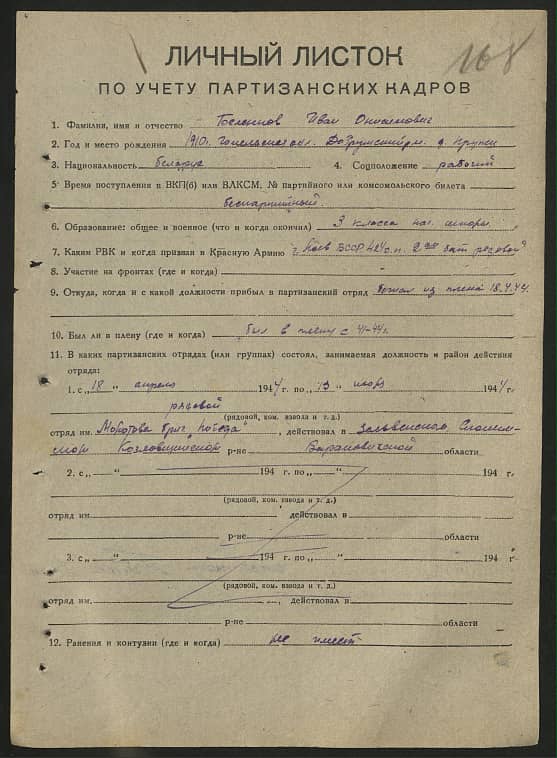 168
ЛИЧНЫЙ ЛИСТОК
ПО УЧЕТУ ПАРТИЗАНСКИХ КАДРОВ
1. Фамилия, имя и отчество Иван
2. Год и место рождения 1910 г. Гомельская обл. Добрушский р. д. Крупец
3. Национальность беларус 4. Соцположение рабочий
5. Время поступления в ВКП(б) или ВЛКСМ, № партийного или комсомольского билета
беспартийный.
6. Образование: общее и военное (что и когда окончил) 3 класса нач. школы
7. Каким РВК и когда призван в Красную Армию БССР рядовой
8. Участие на фронтах (где и когда)
9. Откуда, когда и с какой должности прибыл в партизанский отряд бежал из плена 18.4.44.
10. Был ли в плену (где и когда) был в плену с 41-44 г.
11. В каких партизанских отрядах (или группах) состоял, занимаемая должность и район действия
отряда:
1. с „18 „ апреля 1944 г. по „ „ июля 1944 г.
рядовой
(рядовой, ком. взвода и т. д.)
отряд им. Молотова бриг. победа", действовал в Зельвенском, Слоним-
ском Козловщинском р-не Барановичской области
2. с „ „ 194 г. по „ „ 194 г.
(рядовой, ком. взвода и т. д.)
отряд им. , действовал в
р-не области
3. с „ „ 194 г. по „ „ 194 г.
(рядовой, ком. взвода и т. д.)
отряд им. , действовал в
р-не области
12. Ранения и контузии (где и когда) не имеет